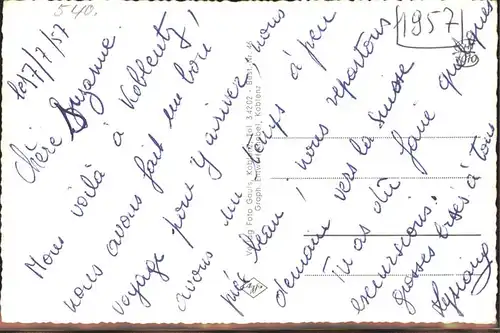 540.
1957
le 17/7/57
Chère Suzanne.
Nous voilà à Koblentz,
nous avons fait un bon
voyage pour y arriver, nous
avons un temps à peu
près beau, nous repartons
demain vers la Suisse
Tu as dû faire quelques
excursions.
grosses bises à tous
Verlag Foto Gauls, Koblenz, Tel. 34202 - Best.-Nr.
Koblenz